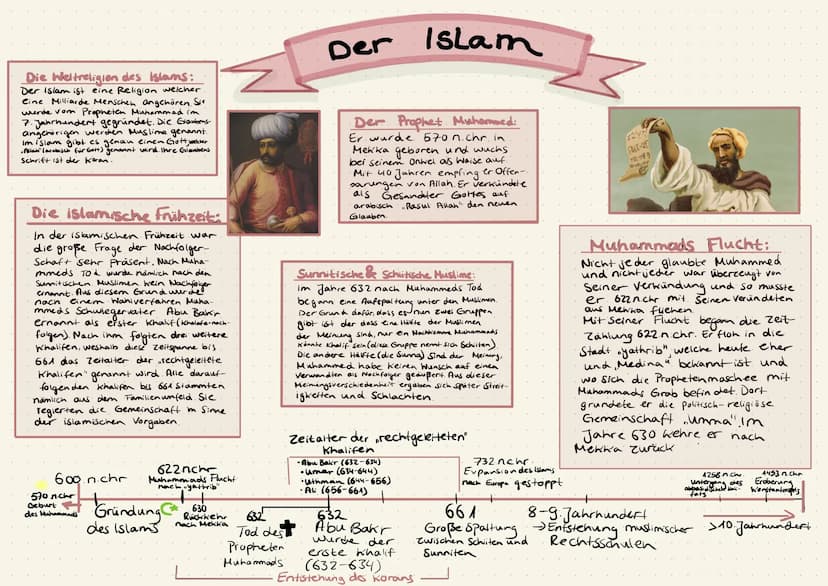 Der Islam
Die Weltreligion des Islams:
Der Islam ist eine Religion welcher
eine Milliarde Menschen angehören. Sie
wurde vom Propheten Muhammad im
7. Jahrhundert gegründet. Die Glaubens-
angehörigen werden Muslime genannt.
Im Islam gibt es genau einen Gott, welcher
„Allah" (arabisch für Gott) genannt wird. Ihre Glaubens
Schrift ist der Koran.
Der Prophet Muhammed:
Er wurde 570 n.chr. in
Mekka geboren und wuchs
bei seinem Onkel als Waise auf.
Mit 40 Jahren empfing er Offen-
barungen von Allah. Er verkündete
als Gesandter Gottes, auf
arabisch „Rasul Allah" den neuen
Glauben.
Die islamische Frühzeit:
In der islamischen Frühzeit war
die große Frage der Nachfolger-
schaft sehr präsent. Nach Muha-
mmeds Tod wurde nämlich nach den
Sunnitischen Muslimen kein Nachfolger
ernannt. Aus diesem Grund wurde
nach einem Wahlverfahren Muha-
mmeds Schwiegervater Abu Bakr
ernannt als erster Khalif (Khalife=nach-
folgen). Nach ihm folgten drei weitere
Khalifen, weshalb diese Zeitspanne bis
661 das Zeitalter der „rechtgeleitete
Khalifen" genannt wird. Alle darauf-
folgenden Khalifen bis 661 stammten
nämlich aus dem Familienumfeld. Sie
regierten die Gemeinschaft im Sinne
der islamischen Vorgaben.
Sunnitische & Schiitische Muslime:
Im Jahre 632 nach Muhammeds Tod
begann eine Aufspaltung unter den Muslimen.
Der Grund dafür, dass es nun zwei Gruppen
gibt ist der dass eine Hälfte der Muslimen
der Meinung sind, nur ein Nachkomme Muhammeds
könnte Khalif sein (diese Gruppe nennt sich Schiiten).
Die andere Hälfte (die Sunna) sind der Meinung,
Muhammed habe keinen Wunsch auf einen
Verwandten als Nachfolger geäußert. Aus dieser
Meinungsverschiedenheit ergaben sich später Streit-
igkeiten und Schlachten.
Muhammads Flucht:
Nicht jeder glaubte Muhammed
und nicht jeder war überzeugt von
seiner Verkündung und so musste
er 622 n.chr mit seinen Veründeten
aus Mekka fliehen.
Mit seiner Flucht begann die Zeit-
zählung 622 n.chr. Er floh in die
Stadt „yathrib", welche heute eher
und „Medina" bekannt ist und
wo sich die Prophetenmoschee mit
Muhammads Grab befindet. Dort
gründete er die politisch-religiöse
Gemeinschaft „Umma". Im
Jahre 630 kehre er nach
Mekka zurück
Zeitalter der „rechtgeleiteten"
Khalifen
• Abu Bakr (632-634)
• Umar (634-644)
• Uthman (644-656)
• Ali (656-661)
600 n.chr
570 n.chr
Geburt
des Muhammads
Gründung
des Islams
622 n.chr
Muhammads Flucht
nach „yathrib"
630
Rückkehr
nach Mekka
632
Tod des
Propheten
Muhammads
632
Abu Bakr
wurde der
erste Khalif
(632-634)
Entstehung des Korans
661
Große Spaltung
zwischen Schiiten und
Sunniten
732 n.chr
Expansion des Islams
nach Europa gestoppt
8-9. Jahrhundert
→ Entstehung muslimischer
Rechtsschulen
1258 n.chr
Untergang des
1453 n.chr
Eroberung
Konstantinopels
> 10. Jahrhundert